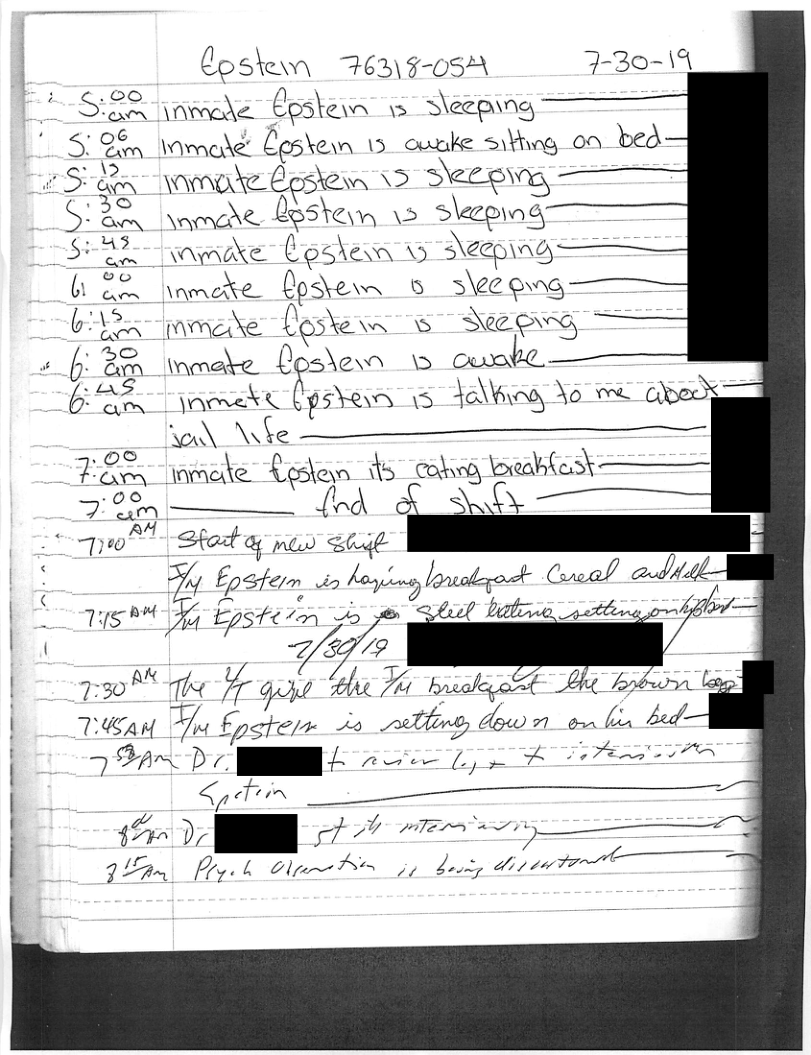 Epstein 76318-054 7-30-19
5:00 am inmate Epstein is sleeping
5:06 am inmate Epstein is awake sitting on bed
5:15 am inmate Epstein is sleeping
5:30 am inmate Epstein is sleeping
5:45 am inmate Epstein is sleeping
6:00 am inmate Epstein is sleeping
6:15 am inmate Epstein is sleeping
6:30 am inmate Epstein is awake
6:45 am inmate Epstein is talking to me about
jail life
7:00 am inmate Epstein its eating breakfast
7:00 am End of shift
7:00 AM Start of new shift
I/M Epstein is having breakfast Cereal and Milk
7:15 AM I/M Epstein is steel eating setting on his bed
7/30/19
7:30 AM The give the I/M breakfast the brown bag
7:45 AM I/M Epstein is setting down on his bed
7 AM Dr. to review log +
Epstein
8 AM Dr still interviewing
8 15 AM Psych Observation is being discontinued